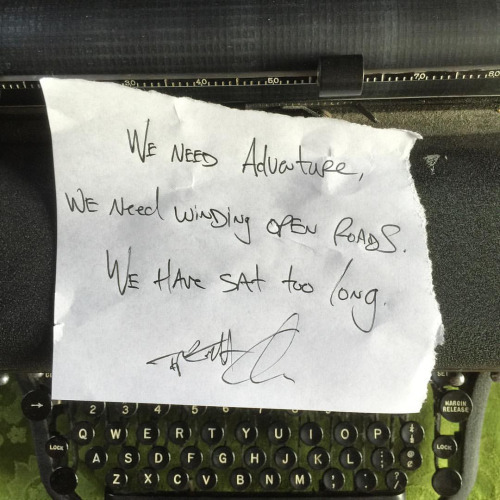 30 40 50 70
WE NEED Adventure,
WE Need WINDING OPEN ROADS.
WE HAVE SAT too long.
MARGIN RELEASE
2 3 4 5 6 7
Q W E R T Y U I O P
LOCK A S D F G H J K L LOCK
Z X C V B N M